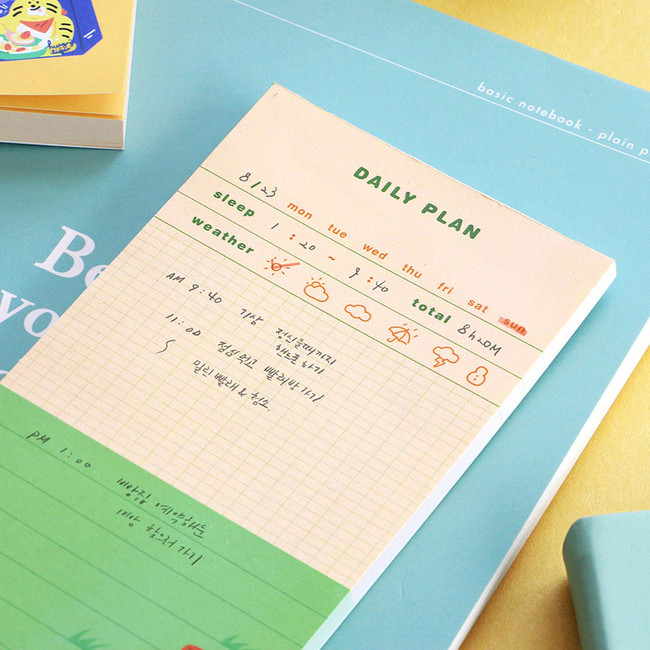 basic notebook - plain p
Be
yo
DAILY PLAN
8/23 mon tue wed thu fri sat sun
sleep 1 : 20 ~ 9 : 40 total 8h20M
weather
AM 9:40 기상 정신들때까지
핸드폰 하기
11:00 점심먹고 빨래방 가기
밀린 빨래 & 청소
PM 1:00 빵집 예약해둔
빵 찾으러 가기